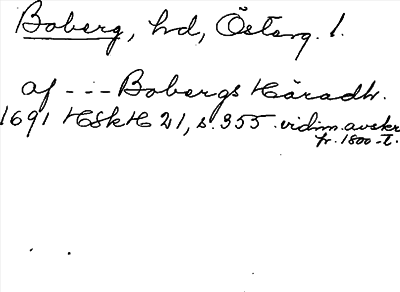 Boberg, hd, Österg. l.
af - - - Bobergs Häradh.
1691 HSkH 21, s. 355. vidim. avskr
fr. 1800-t.